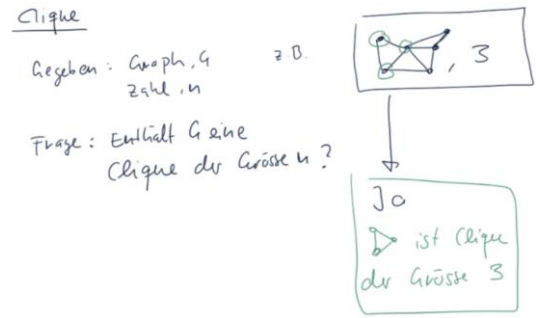 Clique
Gegeben: Graph, G
Zahl, n
z.B.
, 3
Frage: Enthält G eine
Clique der Grösse n?
Ja
ist Clique
der Grösse 3